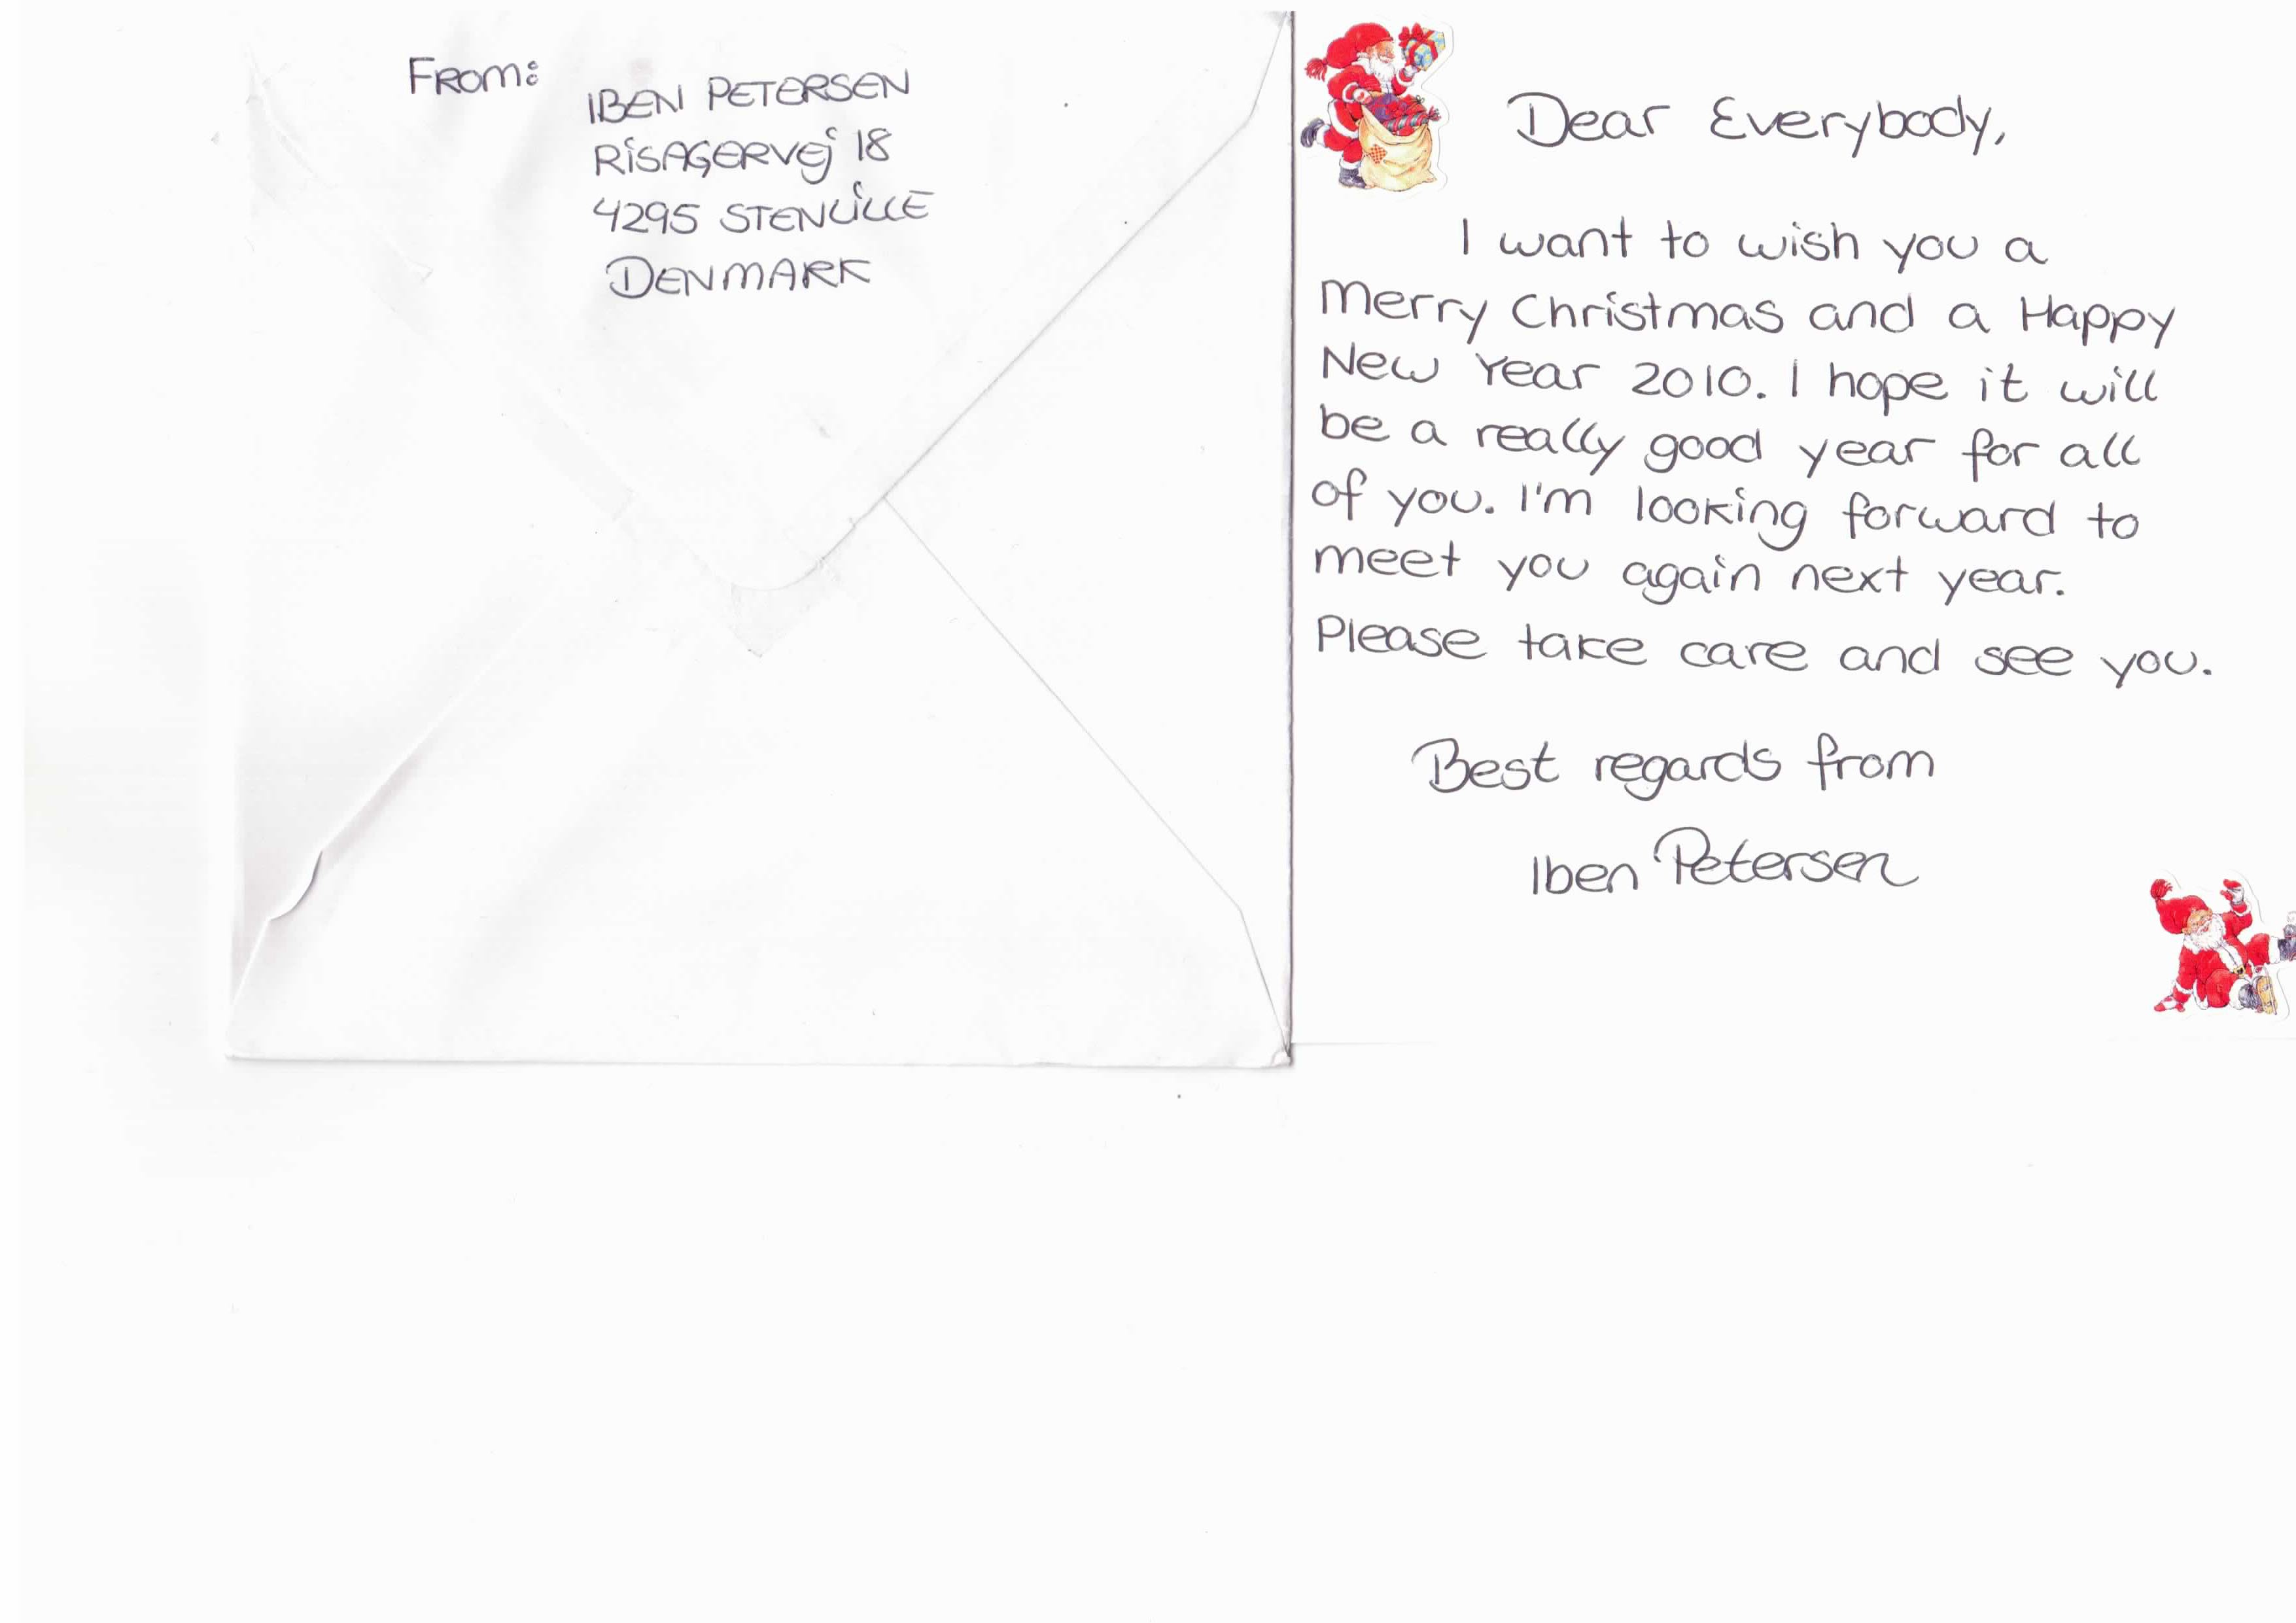 From:
IBEN PETERSEN
RISAGERVEj 18
4295 STENLILLE
DENMARK
Dear Everybody,
I want to wish you a
Merry Christmas and a Happy
New Year 2010. I hope it will
be a really good year for all
of you. I'm looking forward to
meet you again next year.
Please take care and see you.
Best regards from
Iben Petersen